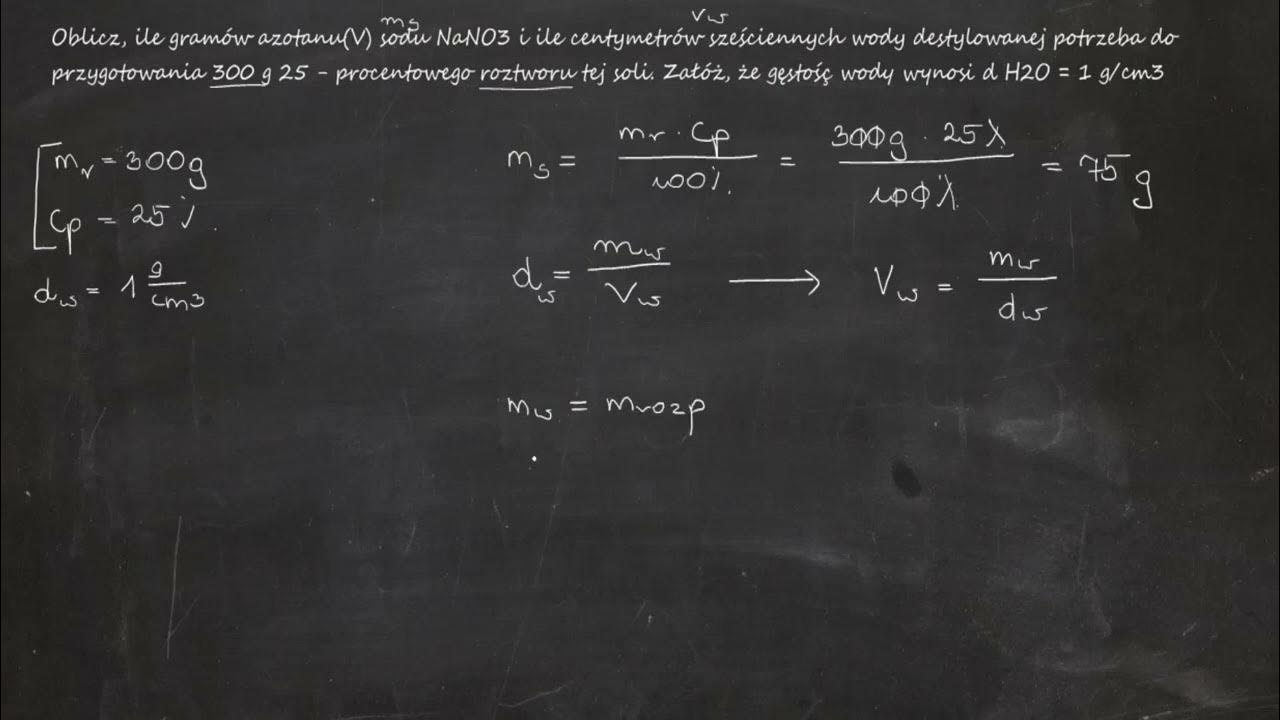 ms Vw
Oblicz, ile gramów azotanu(V) sodu NaNO3 i ile centymetrów sześciennych wody destylowanej potrzeba do
przygotowania 300 g 25 - procentowego roztworu tej soli. Załóż, że gęstość wody wynosi d H2O = 1 g/cm3
mr = 300g
Cp = 25%
dw = 1 g/cm3
ms = mr · Cp / 100% = 300g · 25% / 100% = 75 g
dw = mw / Vw → Vw = mw / dw
mw = mrozp